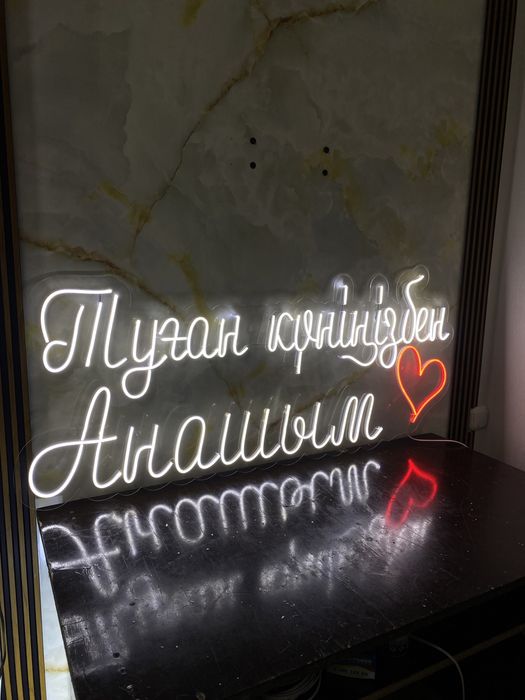 Туған күніңізбен
Анашым